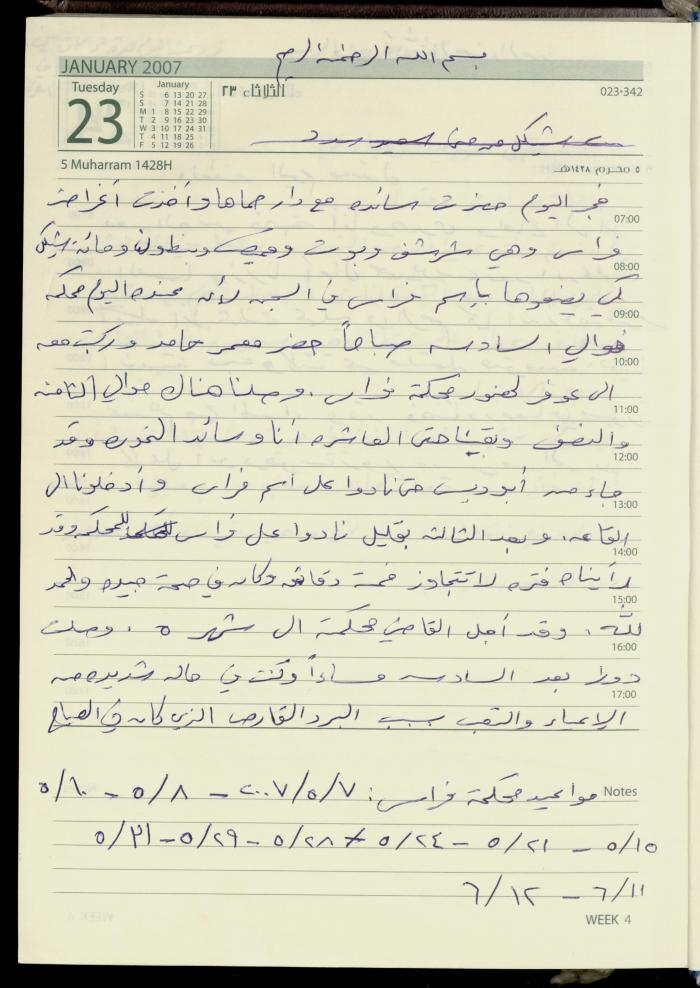 بسم الله الرحمن الرحيم
JANUARY 2007
Tuesday
23
January
S 6 13 20 27
S 7 14 21 28
M 1 8 15 22 29
T 2 9 16 23 30
W 3 10 17 24 31
T 4 11 18 25
F 5 12 19 26
الثلاثاء ٢٣
023-342
5 Muharram 1428H
٥ محرم ١٤٢٨هـ
فجر اليوم حضرت سائده مع دار حماها وأخذت أغراض
07:00
فراس وهي شرشف وبوت وقميص وبنطلون ومائة شيكل
08:00
لكي يضعوها بإسم فراس في السجن لأنه عنده اليوم محكمه
09:00
حوالي السادسه صباحاً حضر معمر حامد وركبت معه
10:00
الى عوفر لحضور محكمة فراس. وصلنا هناك حوالي الثامنه
11:00
والنصف وبقينا حتى العاشره أنا وسائد وقد
12:00
جاء من أبوديس حتى نادوا على اسم فراس وأدخلونا ال
13:00
القاعه. وبعد الثالثه بقليل نادوا على فراس للمحكمه وقد
14:00
رأيناه فتره لا تتجاوز خمسة دقائق وكان في صحة جيده والحمد
15:00
لله. وقد أجل القاضي محكمة ال شهر ٥. وصلت
16:00
دورا بعد السادسه مساءاً وكنت في حاله شديده من
17:00
الإعياء والتعب بسبب البرد القارص الذي كان في الصباح
Notes
مواعيد محكمة فراس: ٢٠٠٧/٥/٧ - ٥/٨ - ٥/١٠
٥/١٥ - ٥/٢١ - ٥/٢٤ - ٥/٢٨ - ٥/٢٩ - ٥/٣١
٦/١١ - ٦/١٢
WEEK 4